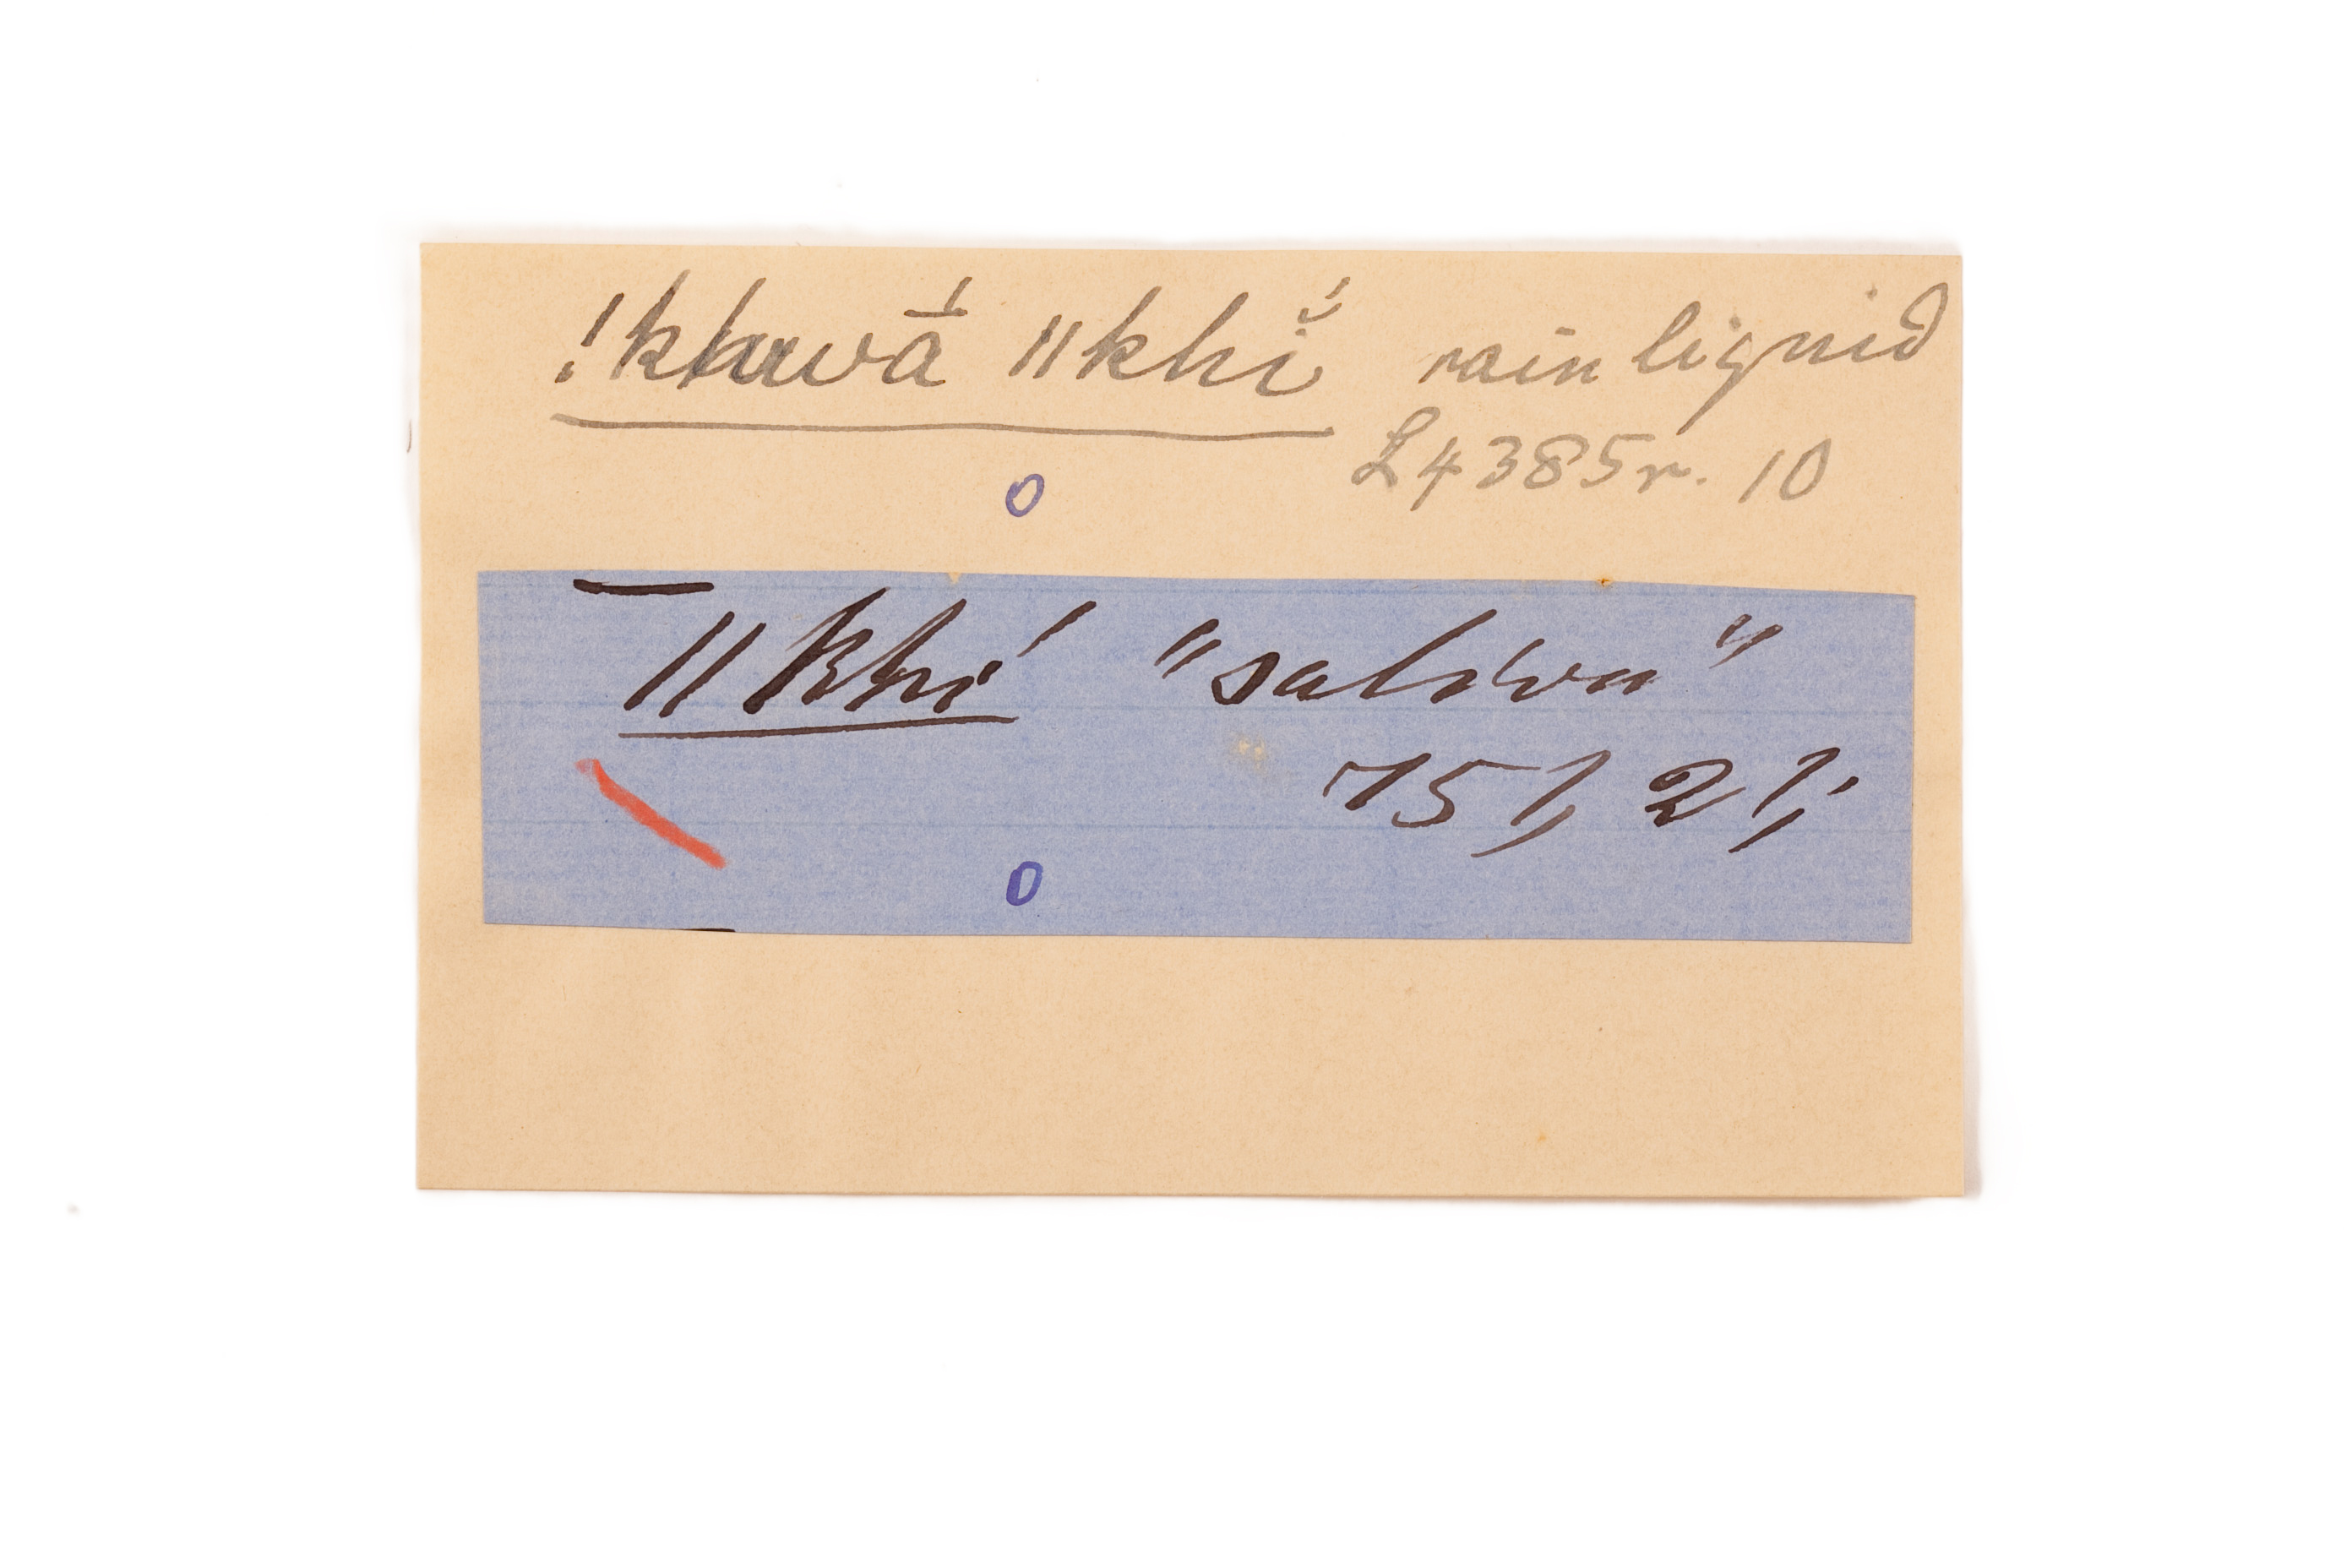 !khwā́ ǁkhĭ́ rain liquid
L4385r. 10
o
ǁkhí "saliva"
o